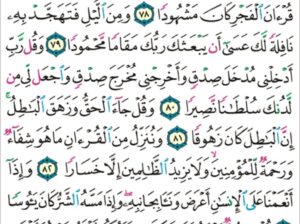 قُرْءَانَ ٱلْفَجْرِ كَانَ مَشْهُودًا ٧٨ وَمِنَ ٱلَّيْلِ فَتَهَجَّدْ بِهِۦ
نَافِلَةً لَّكَ عَسَىٰٓ أَن يَبْعَثَكَ رَبُّكَ مَقَامًا مَّحْمُودًا ٧٩ وَقُل رَّبِّ
أَدْخِلْنِى مُدْخَلَ صِدْقٍ وَأَخْرِجْنِى مُخْرَجَ صِدْقٍ وَٱجْعَل لِّى مِن
لَّدُنكَ سُلْطَٰنًا نَّصِيرًا ٨٠ وَقُلْ جَآءَ ٱلْحَقُّ وَزَهَقَ ٱلْبَٰطِلُ
إِنَّ ٱلْبَٰطِلَ كَانَ زَهُوقًا ٨١ وَنُنَزِّلُ مِنَ ٱلْقُرْءَانِ مَا هُوَ شِفَآءٌ
وَرَحْمَةٌ لِّلْمُؤْمِنِينَ وَلَا يَزِيدُ ٱلظَّٰلِمِينَ إِلَّا خَسَارًا ٨٢ وَإِذَآ
أَنْعَمْنَا عَلَى ٱلْإِنسَٰنِ أَعْرَضَ وَنَـَٔا بِجَانِبِهِۦ وَإِذَا مَسَّهُ ٱلشَّرُّ كَانَ يَـُٔوسًا